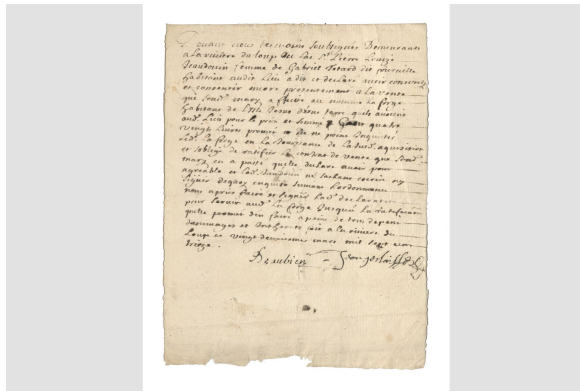 devant nous tesmoins soubsignés Demeurants
a la riviere du loup du Lac St Pierre Louize
Beaudouin femme de Gabriel
habitant audit Lieu a dit et declaré avoir consenty
et consentir encore presentement a la vente
que led mary a faitte au nommé La forge
habitant de L'isle Jesus d'une terre quils avoient
aud Lieu pour le prix et somme de quatre
vingts Livres promis de ne point Inquieter
Led La forge en la Jouissance de lad aquisition
et s'oblige de ratifier le contrat de vente que sond
mary en a passé quelle declare avoir pour
agreable et lad Baudouin ne sachant escrire ny
signer de ce enquise suivant L'ordonnance
nous apres avoir signés lad declaration
pour servir aud La forge Jusqua la ratification
quelle promet d'en faire a peine de tous depens
dommages et Interests fait a la riviere du
Loup ce vingt deuxieme mars mil sept cens
treize.
Beaubien Jean